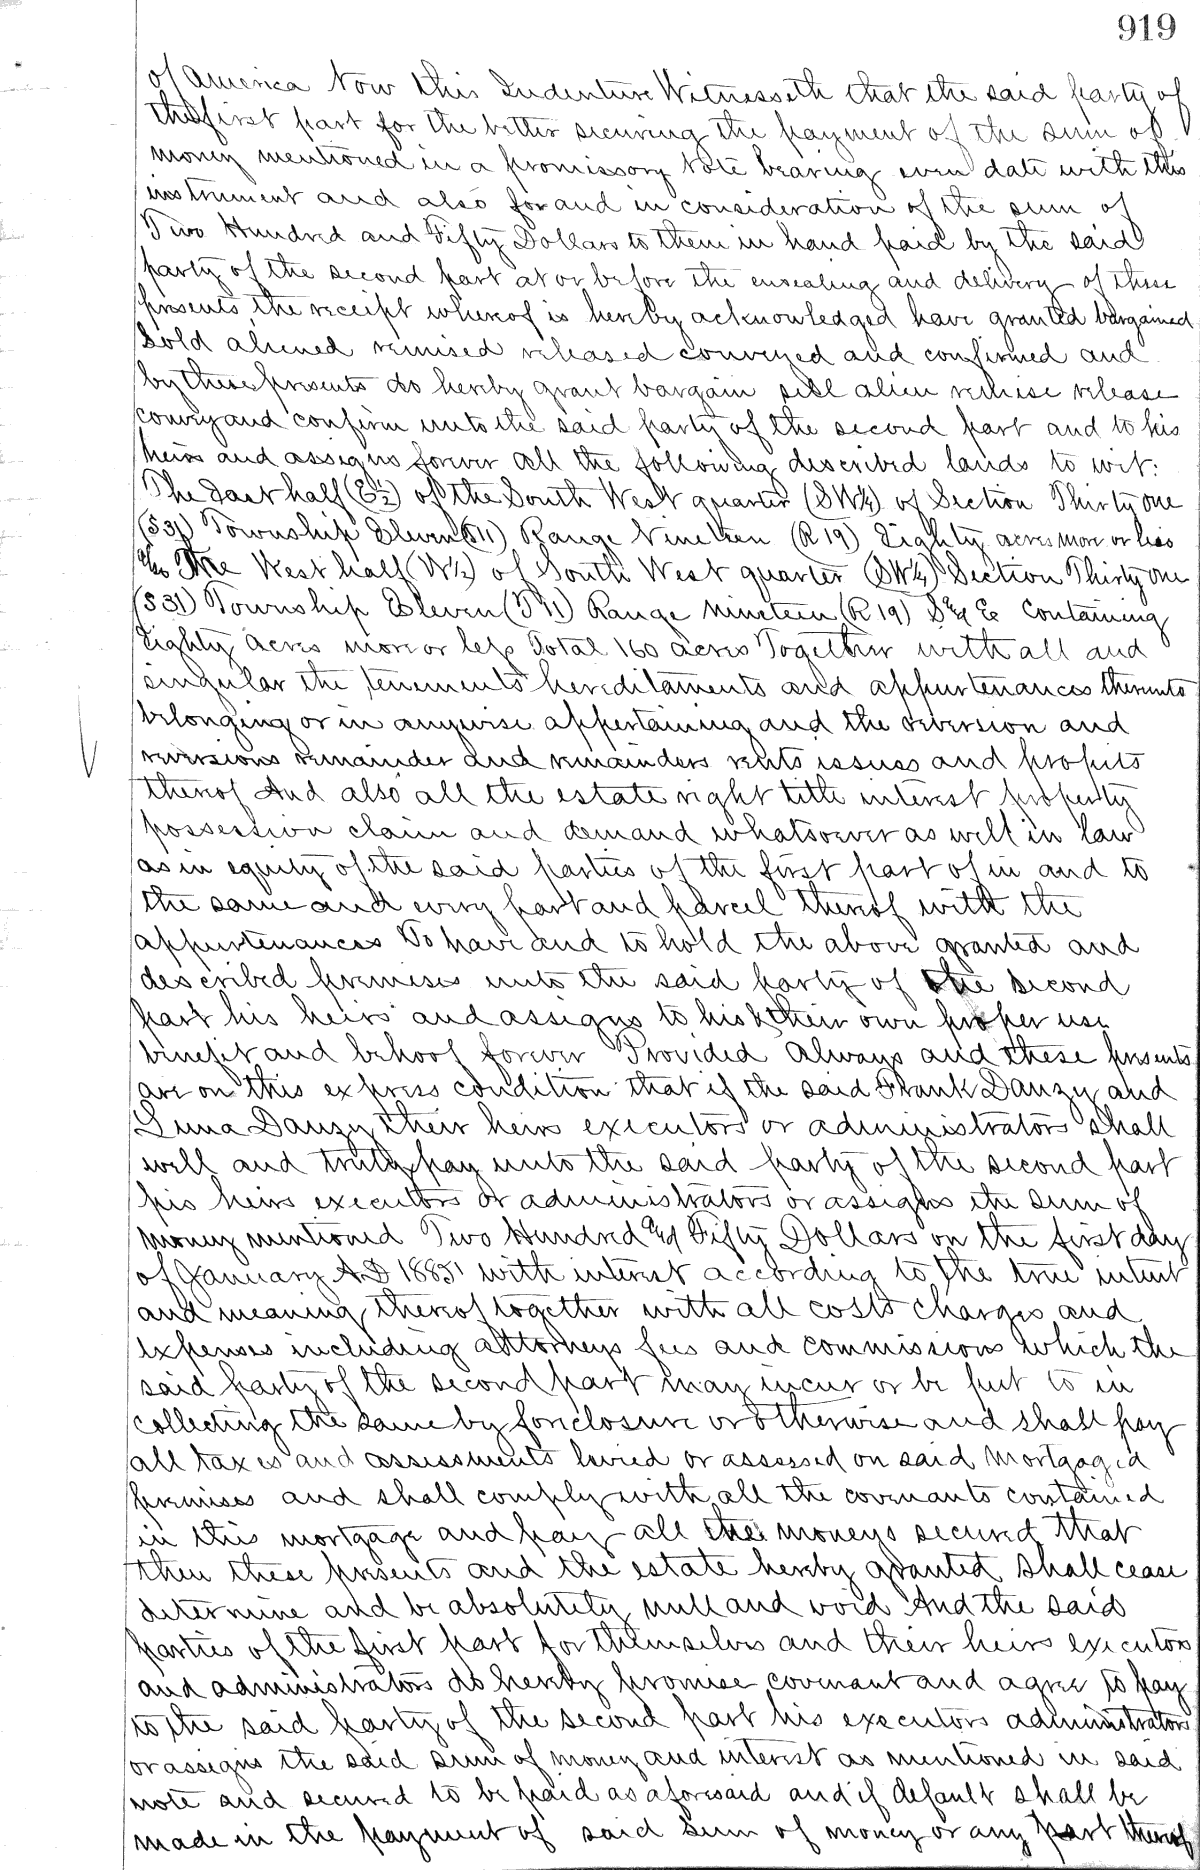 919
of America Now this Indenture Witnesseth that the said party of
the first part for the better securing the payment of the sum of
money mentioned in a promissory note bearing even date with this
instrument and also for and in consideration of the sum of
Two Hundred and Fifty Dollars to them in hand paid by the said
party of the second part at or before the ensealing and delivery of these
presents the receipt whereof is hereby acknowledged have granted bargained
Sold aliened remised released conveyed and confirmed and
by these presents do hereby grant bargain sell alien remise release
convey and confirm unto the said party of the second part and to his
heirs and assigns forever all the following described lands to wit:
The East half (E½) of the South West quarter (SW¼) of Section Thirty one
(S31) Township Eleven (T11) Range Nineteen (R19) Eighty acres more or less
also The West half (W½) of South West quarter (SW¼) Section Thirty one
(S31) Township Eleven (T11) Range Nineteen (R19) S & E Containing
Eighty acres more or less Total 160 acres Together with all and
singular the tenements hereditaments and appurtenances thereunto
belonging or in anywise appertaining and the reversion and
reversions remainder and remainders rents issues and profits
thereof And also all the estate right title interest property
possession claim and demand whatsoever as well in law
as in equity of the said parties of the first part of in and to
the same and every part and parcel thereof with the
appurtenances To have and to hold the above granted and
described premises unto the said party of the second
part his heirs and assigns to his & their own proper use
benefit and behoof forever Provided always and these presents
are on this express condition that if the said Frank Danzy and
Luna Danzy their heirs executors or administrators shall
well and truly pay unto the said party of the second part
his heirs executors or administrators or assigns the sum of
money mentioned Two Hundred and Fifty Dollars on the first day
of January A.D 1885 with interest according to the true intent
and meaning thereof together with all costs charges and
expenses including attorneys fees and commissions which the
said party of the second part may incur or be put to in
collecting the same by foreclosure or otherwise and shall pay
all taxes and assessments levied or assessed on said mortgaged
premises and shall comply with all the covenants contained
in this mortgage and pay all the moneys secured that
then these presents and the estate hereby granted shall cease
determine and be absolutely null and void And the said
parties of the first part for themselves and their heirs executors
and administrators do hereby promise covenant and agree to pay
to the said party of the second part his executors administrators
or assigns the said sum of money and interest as mentioned in said
note and secured to be paid as aforesaid and if default shall be
made in the payment of said sum of money or any part thereof